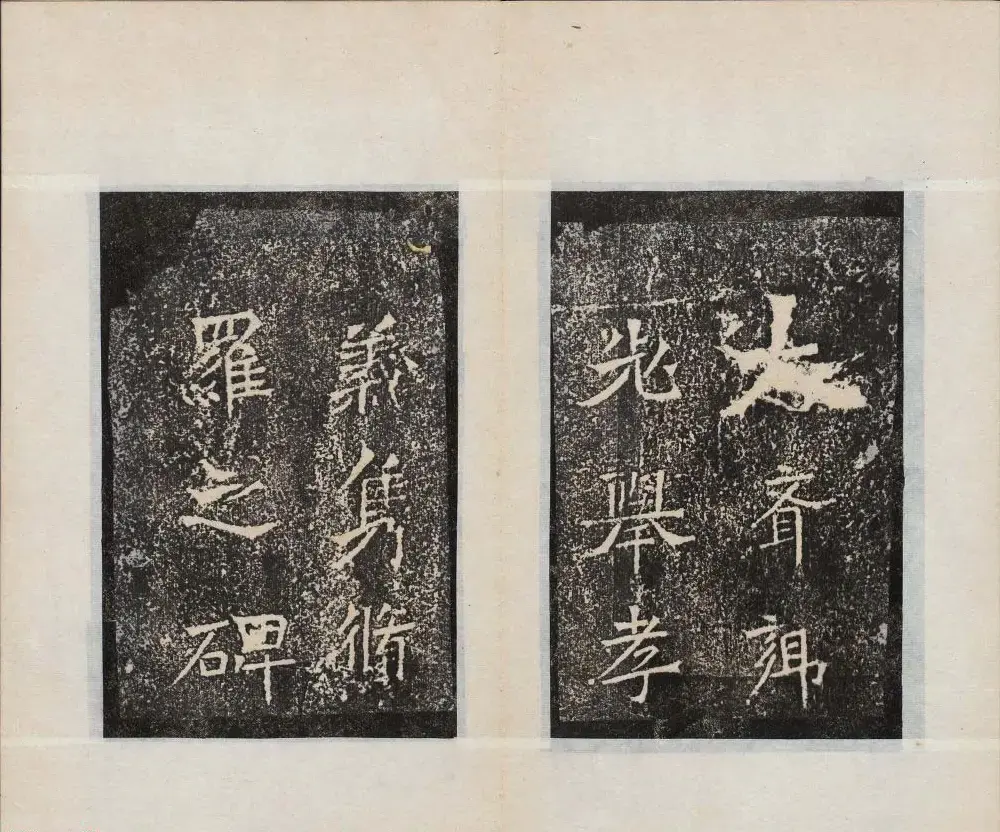 大齊鄉
老舉孝
義雋脩
羅之碑